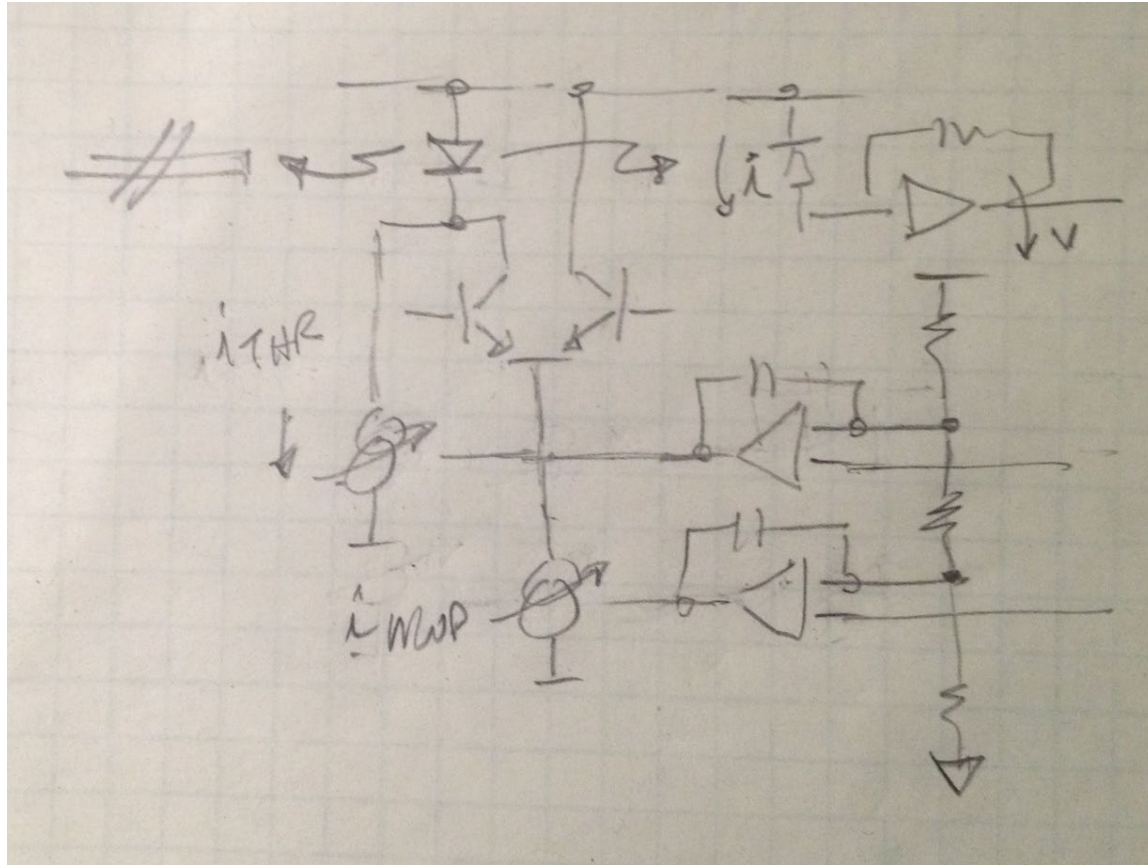 i
V
iTHR
iMOD